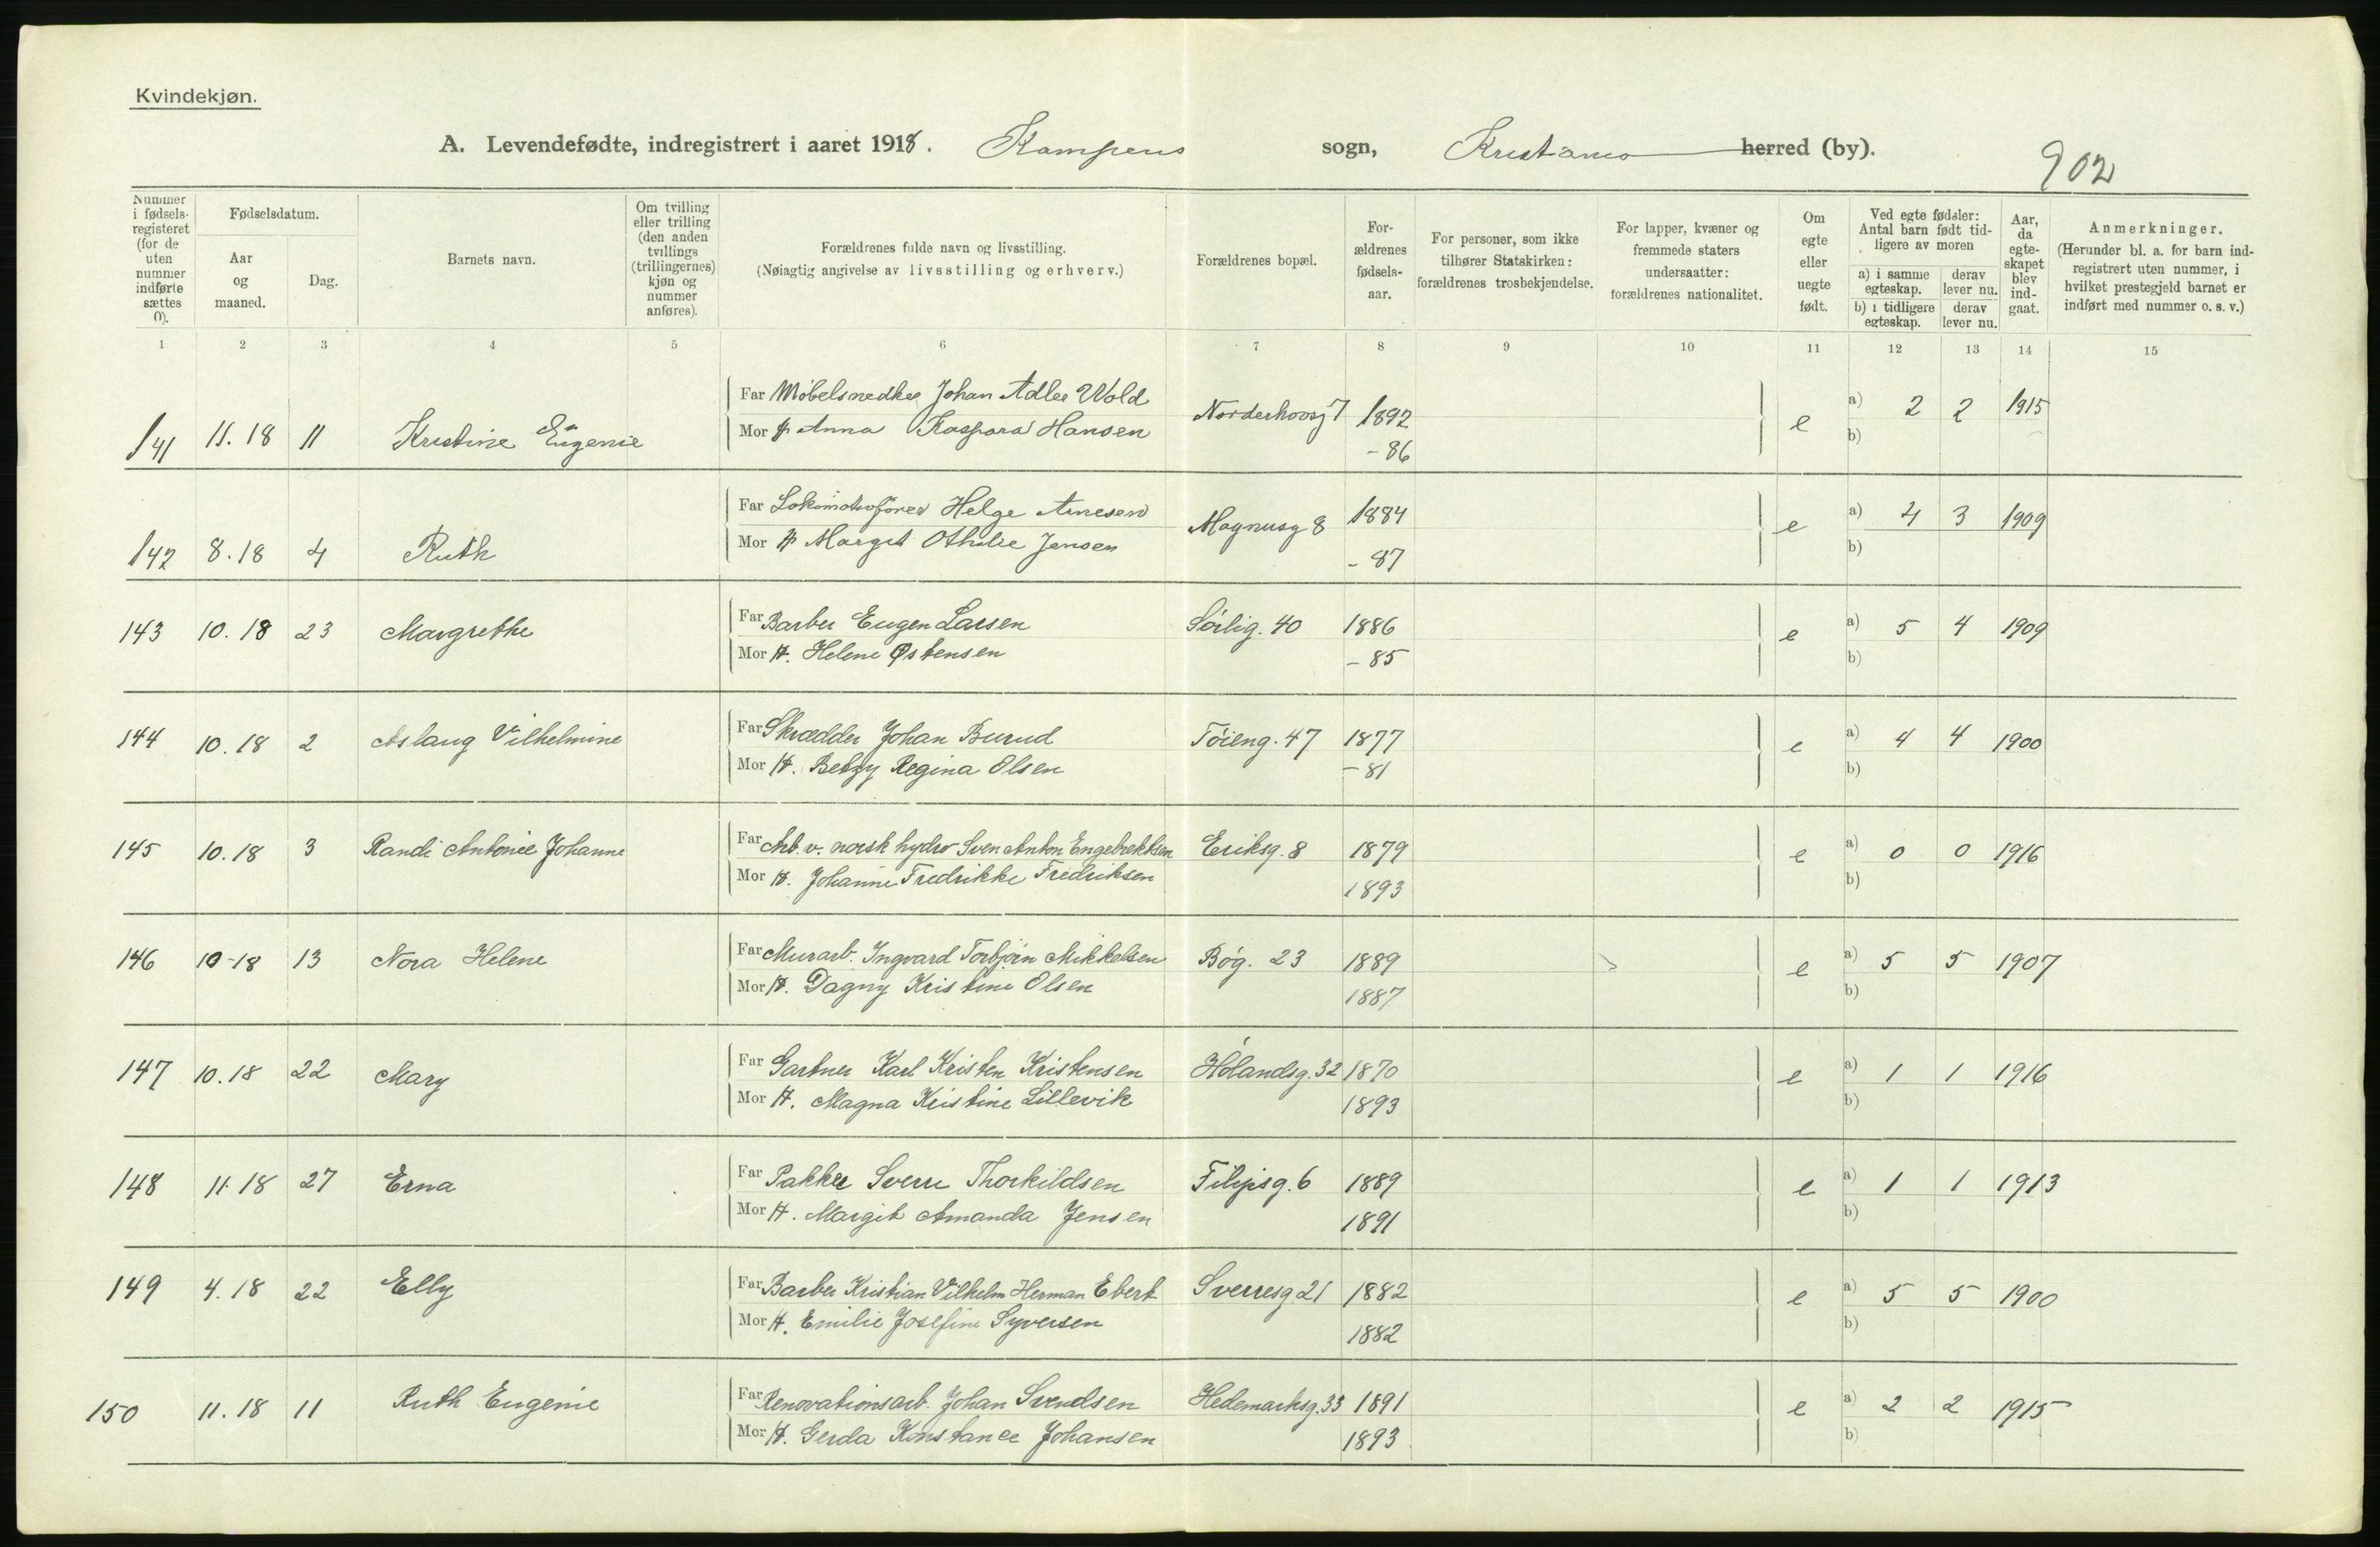 Kvindekjøn.
A. Levendefødte, indregistrert i aaret 1918. Kampens sogn, Kristiania herred (by).
902
Nummer i fødsels- registeret (for de uten nummer indførte sættes 0).
Fødselsdatum.
Aar og maaned.
Dag.
Barnets navn.
Om tvilling eller trilling (den anden tvillings (trillingernes) kjøn og nummer anføres).
Forældrenes fulde navn og livsstilling.
(Nøiagtig angivelse av livsstilling og erhverv.)
Forældrenes bopæl.
For- ældrenes fødsels- aar.
For personer, som ikke tilhører Statskirken: forældrenes trosbekjendelse.
For lapper, kvæner og fremmede staters undersaatter: forældrenes nationalitet.
Om egte eller uegte født.
Ved egte fødsler: Antal barn født tid- ligere av moren
a) i samme egteskap.
derav lever nu.
b) i tidligere egteskap.
derav lever nu.
Aar, da egte- skapet blev ind- gaat.
Anmerkninger.
(Herunder bl. a. for barn ind- registrert uten nummer, i hvilket prestegjeld barnet er indført med nummer o. s. v.)
1 2 3 4 5 6 7 8 9 10 11 12 13 14 15
Far Møbelsnedker Johan Adler Wold Norderhovsg 7 1892 e a) 2 2 1915
141 11.18 11 Kristine Eugenie
Mor H Anna Kaspara Hansen -86 b)
Far Lokomotivfører Helge Arnesen Magnusg 8 1884 e a) 4 3 1909
142 8.18 4 Ruth
Mor H Margit Othilie Jensen -87 b)
143 10.18 23 Margrethe Far Barber Eugen Larsen Sørlig. 40 1886 e a) 5 4 1909
Mor H. Helene Østensen -85 b)
144 10.18 2 Aslaug Vilhelmine Far Skrædder Johan Burud Tøieng. 47 1877 e a) 4 4 1900
Mor H. Betzy Regina Olsen -81 b)
145 10.18 3 Randi Antonie Johanne Far Arb. v. norsk hydro Sven Anton Engebrektsen Eriksg. 8 1879 e a) 0 0 1916
Mor H. Johanne Fredrikke Fredriksen 1893 b)
146 10-18 13 Nora Helene Far Murarb. Ingvard Torbjørn Mikkelsen Bøg. 23 1889 e a) 5 5 1907
Mor H. Dagny Kristine Olsen 1887 b)
147 10.18 22 Mary Far Gartner Karl Kristen Kristensen Hølandsg. 32 1870 e a) 1 1 1916
Mor H. Magna Kristine Lillevik 1893 b)
148 11.18 27 Erna Far Pakker Sverre Thorkildsen Filipsg. 6 1889 e a) 1 1 1913
Mor H. Margit Amanda Jensen 1891 b)
149 4.18 22 Elly Far Barber Kristian Vilhelm Herman Ebert Sverresg. 21 1882 e a) 5 5 1900
Mor H. Emilie Josefine Syversen 1882 b)
150 11.18 11 Ruth Eugenie Far Renovationsarb. Johan Svendsen Hedemarksg. 33 1891 e a) 2 2 1915
Mor H. Gerda Konstance Johansen 1893 b)